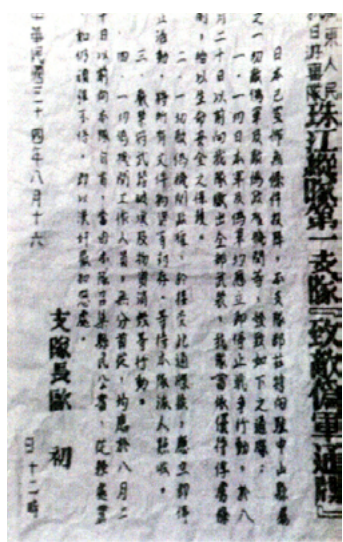 東人民
日游擊隊
珠江縱隊第一支隊『致敵偽軍通牒』
日本已宣佈無條件投降,本支隊部茲特向駐中山縣屬
之一切敵偽軍及敵偽政權機關等,發致如下之通牒:
一、一切日本軍及偽軍均應立即停止戰爭行動,於八
月二十日以前向我隊繳出全部武裝,我隊當依優待俘虜條
例,給以生命安全之保證。
二、一切敵偽機關接受此通牒後,應立即停
止活動,將所有文件物資封存,等待本隊派人點收。
三、嚴禁將武器破壞及物資消毀等行動。
四、一切偽機關工作人員,無分首從,均應於八月二
十日以前向本隊自首,當由本隊召集縣民公審,從輕處置
如仍頑強不悟,即以漢奸懲處。
支隊長歐 初
中華民國三十四年八月十六日十二時